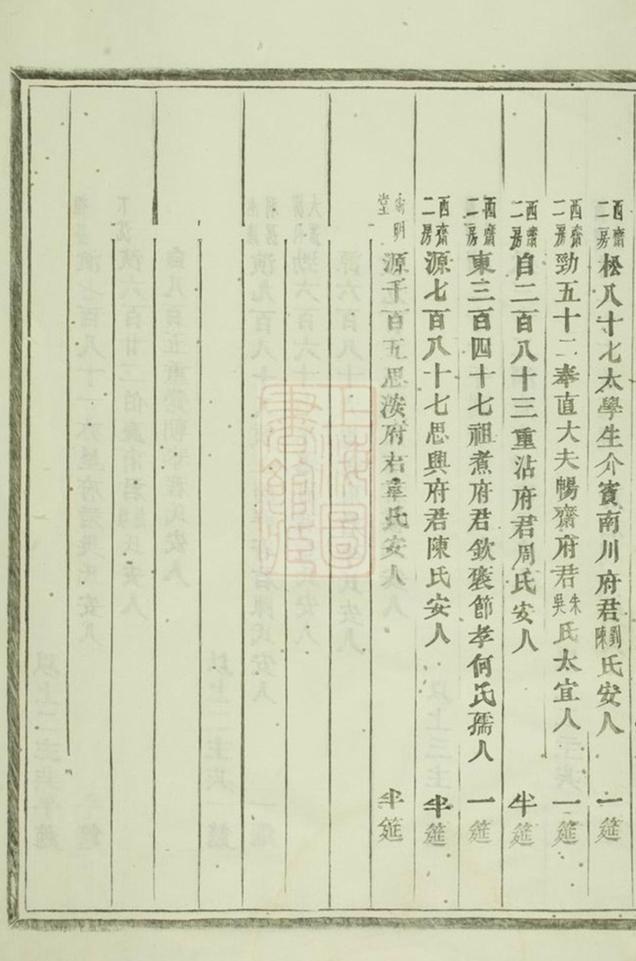 西齋二房松八十七太學生介賓南川府君劉陳氏安人 一筵
西齋二房勁五十二奉直大夫暢齋府君朱吳氏太宜人 一筵
西齋二房自二百八十三重沾府君周氏安人 半筵
西齋二房東三百四十七祖煮府君欽褒節孝何氏孺人 一筵
西齋二房源七百八十七思興府君陳氏安人 半筵
明堂源千百五思府君章氏安人 半筵